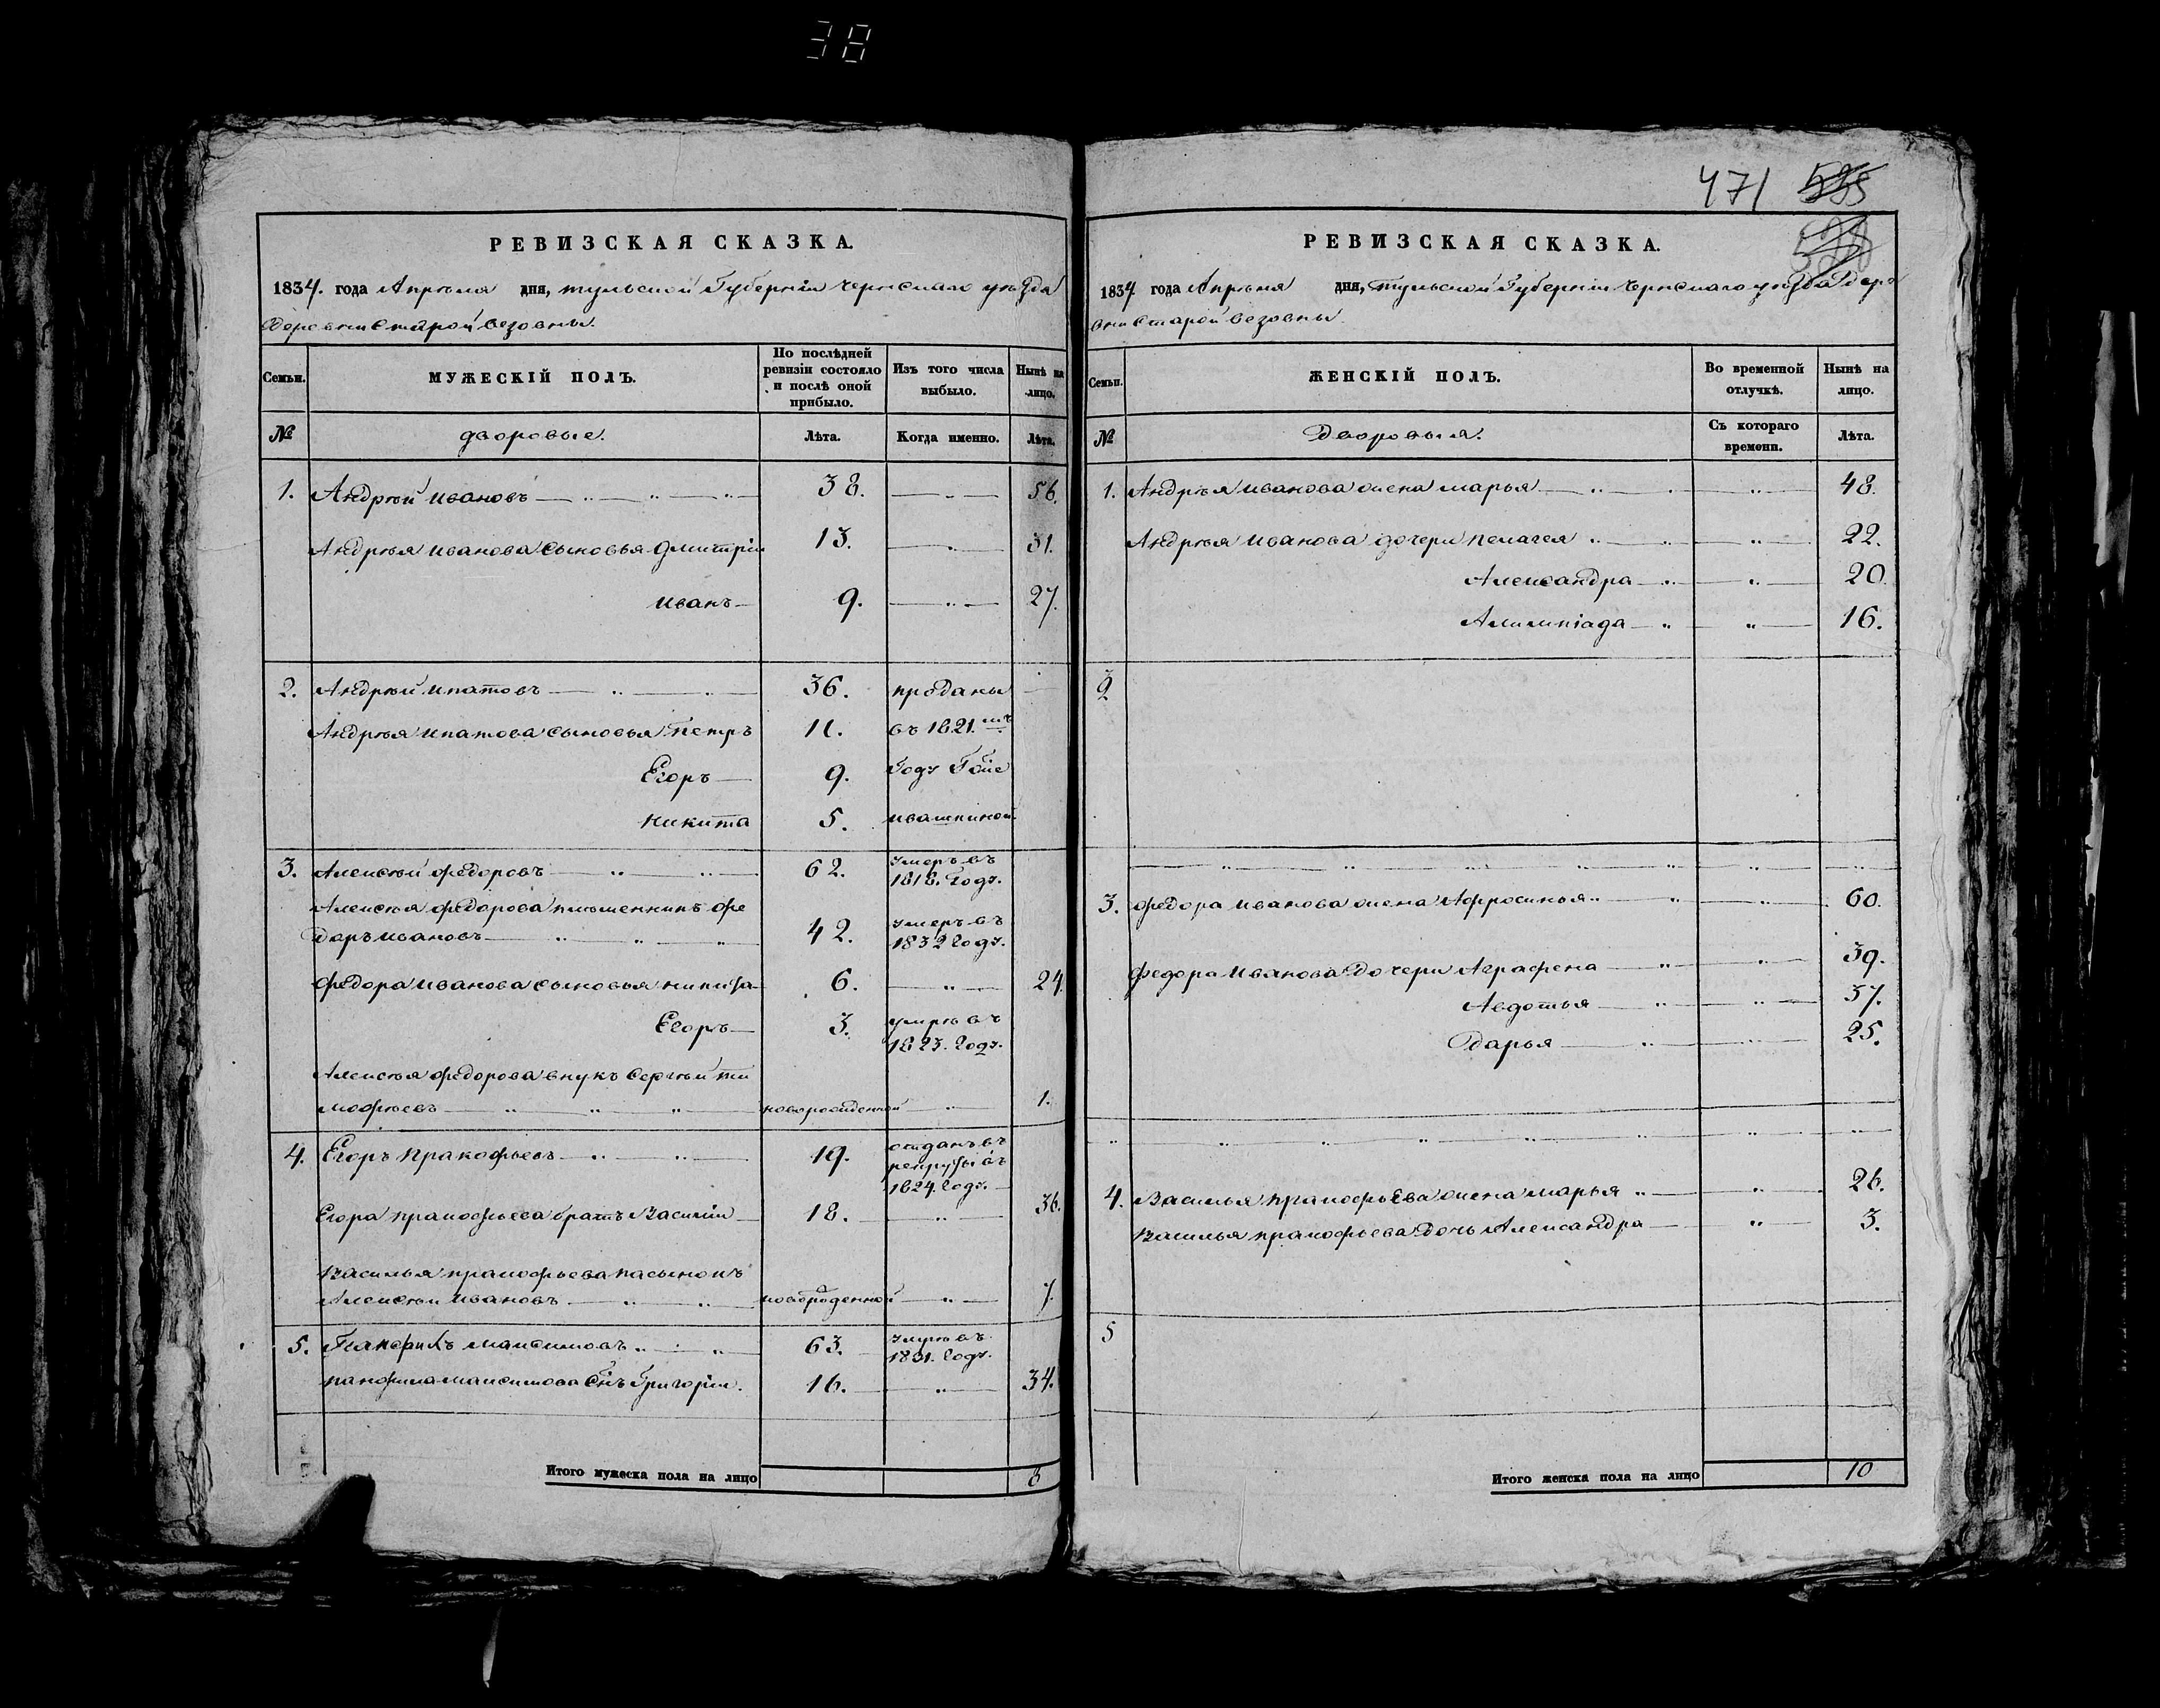 38
РЕВИЗСКАЯ СКАЗКА.
1834. года Апрѣля дня, тульской Губерніи чернскаго уѣзда
Деревни Старой везовны.
Семьи. МУЖЕСКІЙ ПОЛЪ. По послѣдней ревизіи состояло и послѣ оной прибыло. Изъ того числа выбыло. Нынѣ на лицо.
№ дворовые. Лѣта. Когда именно. Лѣта.
1. Андрѣй ивановъ 38. 56.
Андрѣя иванова сыновья дмитріи 13. 31.
иванъ 9. 27.
2. Андрѣй ипатовъ 36. проданы
Андрѣя ипатова сыновья петръ 11. въ 1821.мъ
Егоръ 9. Году Гоже
никита 5. ивашкиной.
3. Алексѣй федоровъ 62. умеръ въ 1818. Году.
Алексѣя федорова племенникъ фе
даръ ивановъ 42. умеръ въ 1832 Году.
федора иванова сыновья никита 6. 24.
Егоръ 3. умре въ 1823. Году.
Алексѣя федорова внукъ Сергѣй ти
мофѣевъ новорожденной 1.
4. Егоръ пракофьевъ 19. отданъ въ рекруты въ 1824. Году.
Егора пракофьева братъ Василіи 18. 36.
Василья пракофьева пасынокъ
Алексѣи ивановъ новорожденной 7.
5. Панфилъ максимовъ 63. умре въ 1831. Году.
панфила максимова Снъ Григоріи. 16. 34.
Итого мужеска пола на лицо 8
471 535
РЕВИЗСКАЯ СКАЗКА.
1834. года Апрѣля дня, тульской Губерніи чернскаго уѣзда Дере
вни Старой везовны
Семьи. ЖЕНСКІЙ ПОЛЪ. Во временной отлучкѣ. Нынѣ на лицо.
№ Дворовыя. Съ котораго времени. Лѣта.
1. Андрѣя иванова жена марья 48.
Андрѣя иванова дочери пелагея 22.
Александра 20.
Алимпіада 16.
2
3. федора иванова жена Афросинья 60.
федора иванова Дочери Аграфена 39.
Авдотья 37.
Дарья 25.
4. Василья пракофьева жена марья 26.
Василья пракофьева Дочь Александра 3.
5
Итого женска пола на лицо 10